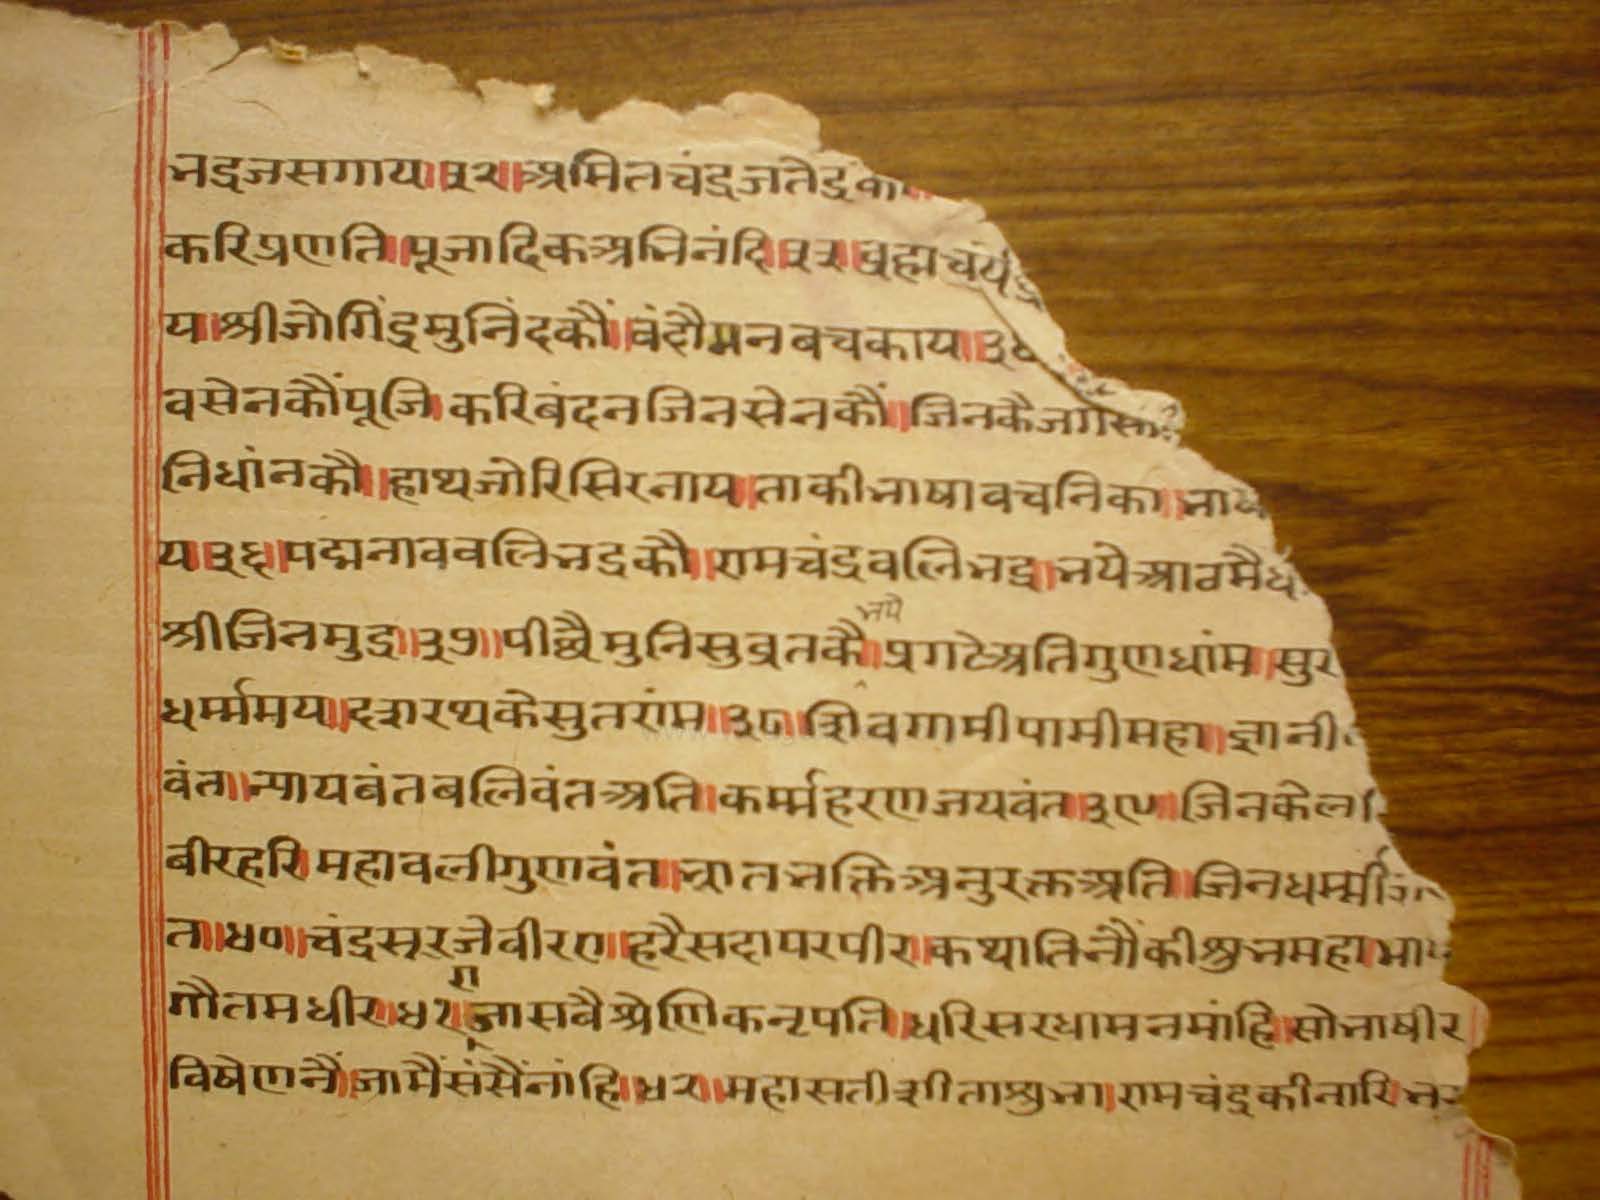 भद्रजसगाय॥३२॥अमितचंद्रजतेंद्रका
करिप्रणति॥पूजादिकअभिनंदि॥३३॥ब्रह्मचर्य
य॥श्रीजोगिंद्रमुनिंदकौं॥वंदौमनबचकाय॥३४
वसेनकौंपूजि।करिबंदनजिनसेनकौं॥जिनकैजग
निधांनकौ॥हाथजोरिसिरनाय॥ताकीभाषावचनिका॥भाष
य॥३६॥पद्मनाववलिभद्रकौ॥रामचंद्रवलिभद्र॥भयेआठमै
श्रीजिनमुद्र॥३७॥पीछैमुनिसुव्रतकै॥भयै प्रगटेअतिगुणधांम॥सुर
धर्म्ममय॥दशरथकेसुतरांम॥३८॥शिवगामीपामीमहा॥ज्ञानी
वंत॥न्यायबंतबलिवंतअति॥कर्म्महरणजयवंत॥३९॥जिनकेल
बीरहरिमहावलीगुणवंत॥भ्रातभक्तिअनुरक्तअति॥जिनधर्म्मी
त॥४०॥चंद्रसूरजेवीरण॥हरैसदापरपीर॥कथातिनौंकीशुभमहा॥भा
गौतमधीर॥४१॥राजासवैश्रेणिकनृपति॥धरिसरधामनमांहि॥सोभाषीर
विषेणनैं॥जामैंसंसैंनांहि॥४२॥महासतीशीताशुभा॥रामचंद्रकीनारि॥भर